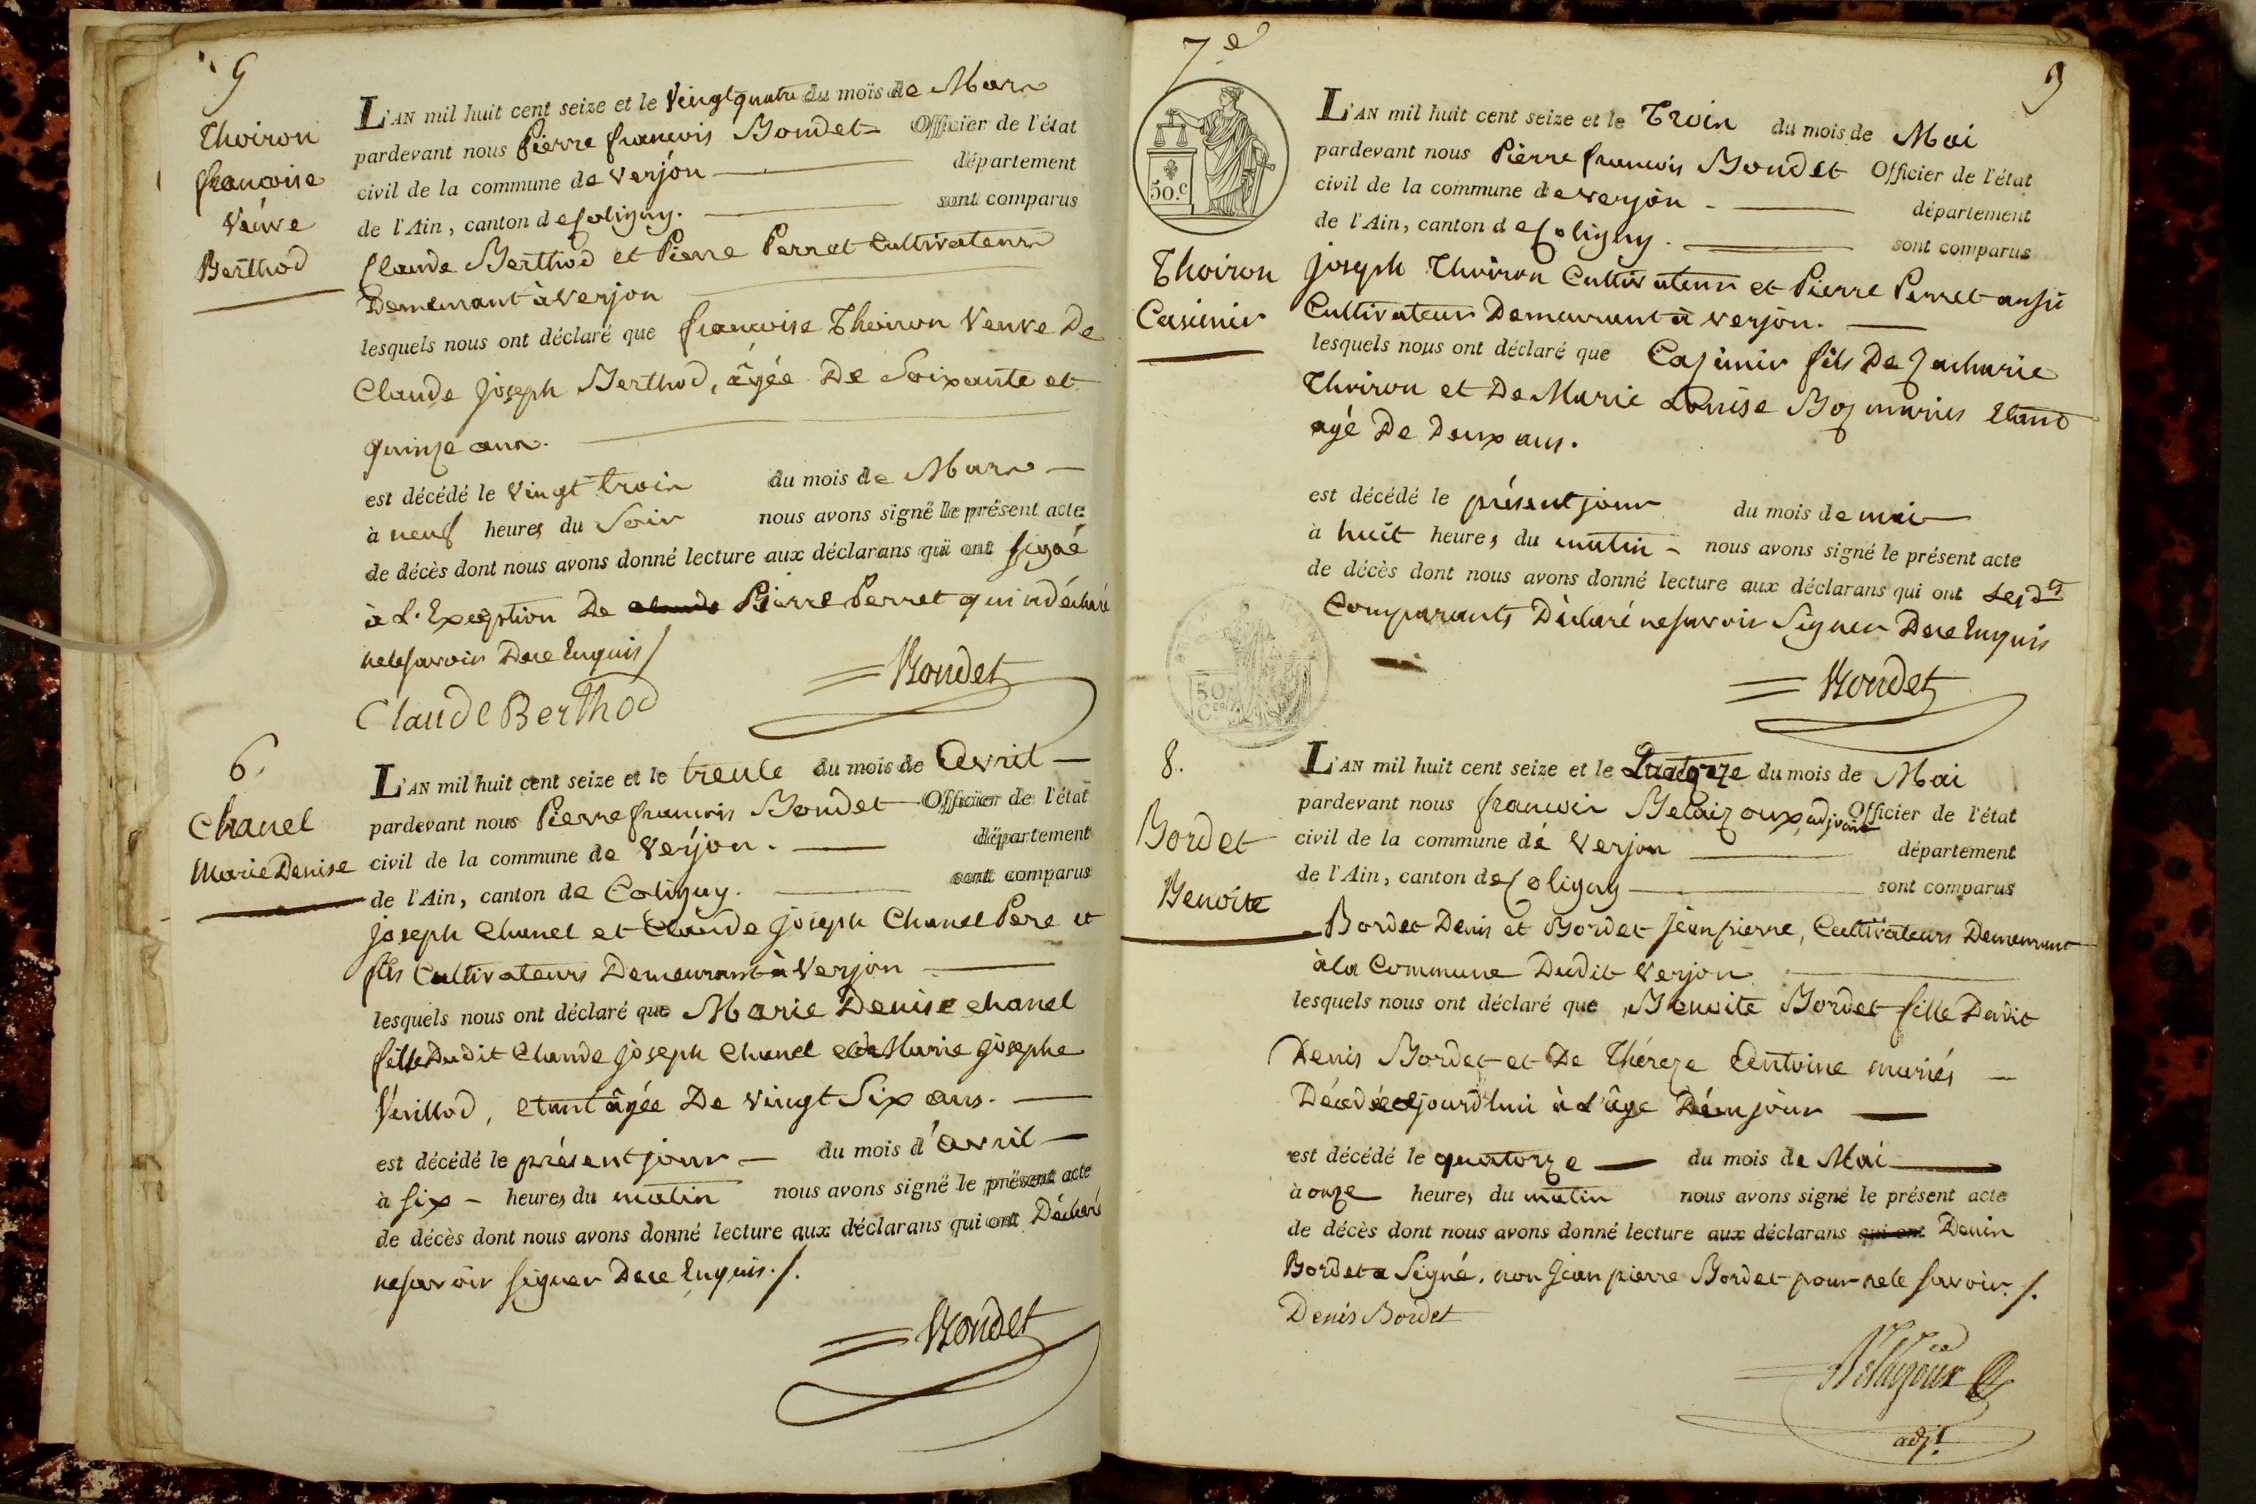 5
Thoiron
françoise
Veuve
Berthod
L'AN mil huit cent seize et le Vingt quatre du mois de Mars
pardevant nous Pierre françois Bondet Officier de l'état
civil de la commune de Verjon département
de l'Ain, canton de Coligny. sont comparus
Claude Berthod et Pierre Perret Cultivateurs
Demeurant à Verjon
lesquels nous ont déclaré que françoise Thoiron Veuve De
Claude Joseph Berthod, âgée De Soixante et
quinze ans.
est décédé le Vingt trois du mois de Mars
à neuf heures du Soir nous avons signé le présent acte
de décès dont nous avons donné lecture aux déclarans qui ont signé
à L'Exception De Pierre Perret qui a déclaré
ne le savoir De ce Enquis /
Bondet
Claude Berthod
6.
Chanel
Marie Denise
L'AN mil huit cent seize et le trente du mois de Avril
pardevant nous Pierre françois Bondet Officier de l'état
civil de la commune de Verjon. département
de l'Ain, canton de Coligny. sont comparus
Joseph Chanel et Claude Joseph Chanel Pere et
fils Cultivateurs Demeurant à Verjon
lesquels nous ont déclaré que Marie Denise Chanel
fille Dudit Claude Joseph Chanel et de Marie Josephe
Verillod, etant âgée De Vingt Six ans.
est décédé le présent jour du mois d'avril
à six heures du matin nous avons signé le présent acte
de décès dont nous avons donné lecture aux déclarans qui ont Déclaré
ne savoir signer De ce Enquis. /.
Bondet
7.e
9
50.c
Thoiron
Casimir
L'AN mil huit cent seize et le Trois du mois de Mai
pardevant nous Pierre françois Bondet Officier de l'état
civil de la commune de Verjon département
de l'Ain, canton de Coligny. sont comparus
Joseph Thoiron Cultivateur et Pierre Perret aussi
Cultivateur Demeurant à Verjon.
lesquels nous ont déclaré que Casimir fils De Zacharie
Thoiron et De Marie Louise Boz mariés Etant
agé De Deux ans.
est décédé le présent jour du mois de mai
à huit heures du matin nous avons signé le présent acte
de décès dont nous avons donné lecture aux déclarans qui ont Lesd.ts
Comparants Déclaré ne savoir Signer De ce Enquis
50
Cen
Bondet
8.
Bordet
Benoite
L'AN mil huit cent seize et le Quatorze du mois de Mai
pardevant nous françois Belaizoux, adjoint Officier de l'état
civil de la commune de Verjon département
de l'Ain, canton de Coligny sont comparus
Bordet Denis et Bordet Jean pierre, Cultivateurs Demeurant
à la Commune Dudit Verjon
lesquels nous ont déclaré que Benoite Bordet fille Dudit
Denis Bordet et De Théreze Antoine mariés
Décédée cejourd'hui à L'âge D'un jour
est décédé le quatorze du mois de Mai
à onze heures du matin nous avons signé le présent acte
de décès dont nous avons donné lecture aux déclarans qui ont Denis
Bordet a Signé, non Jean pierre Bordet pour ne le savoir. /.
Denis Bordet
Belaizoux
adj.t